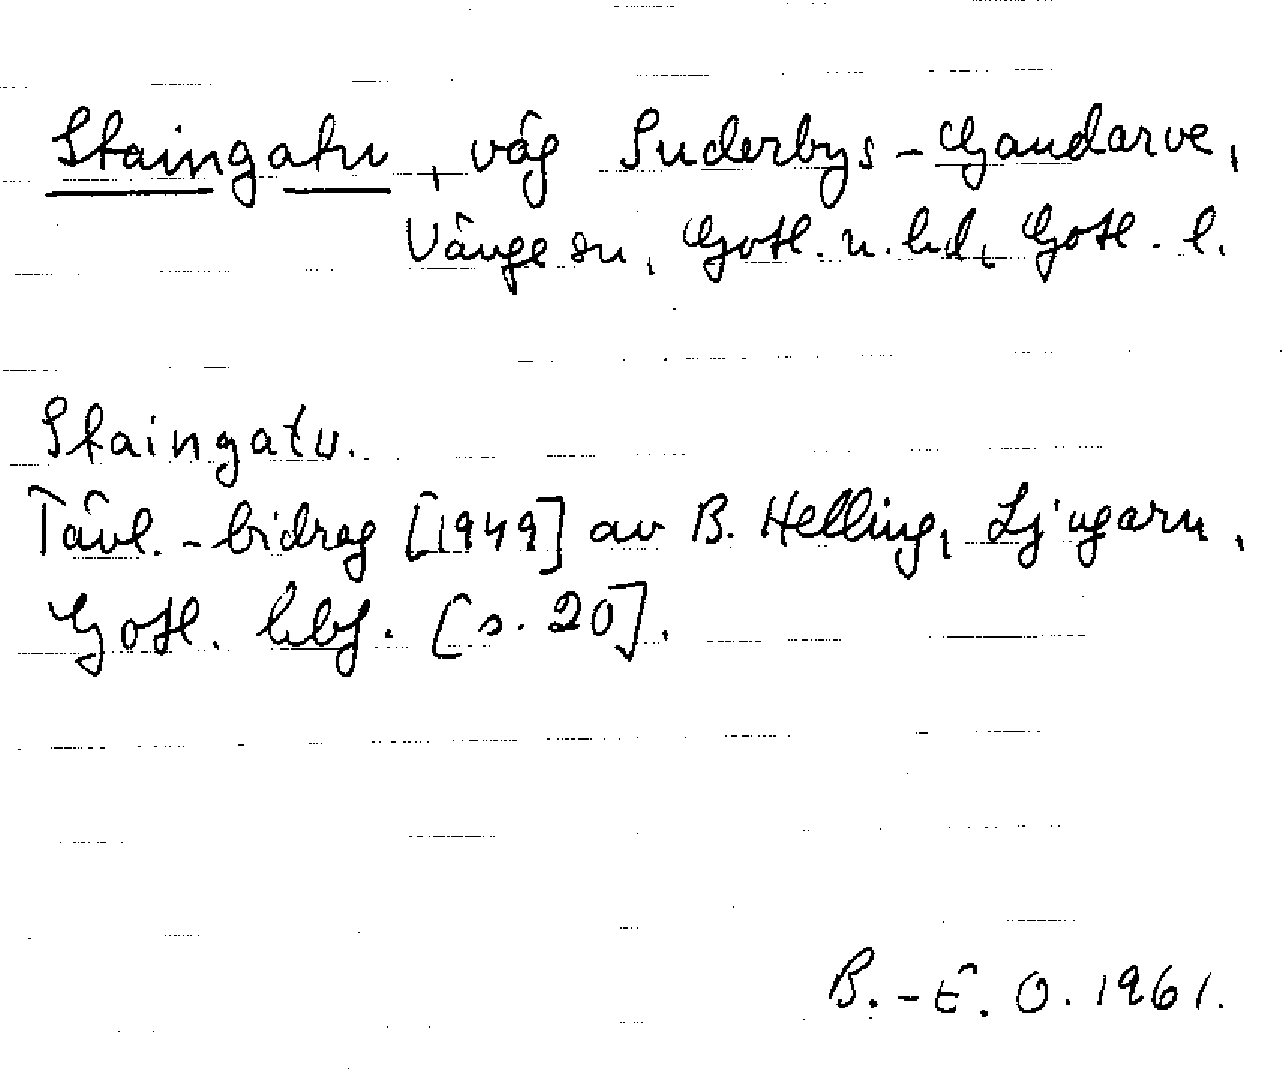 Staingatu, väg Suderbys - Gandarve,
Vänge sn, Gotl. n. hd, Gotl. l.
Staingatu.
Tävl. - bidrag [1949] av B. Helling, Ljugarn,
Gotl. hbf. [s. 20].
B. - E. O. 1961.